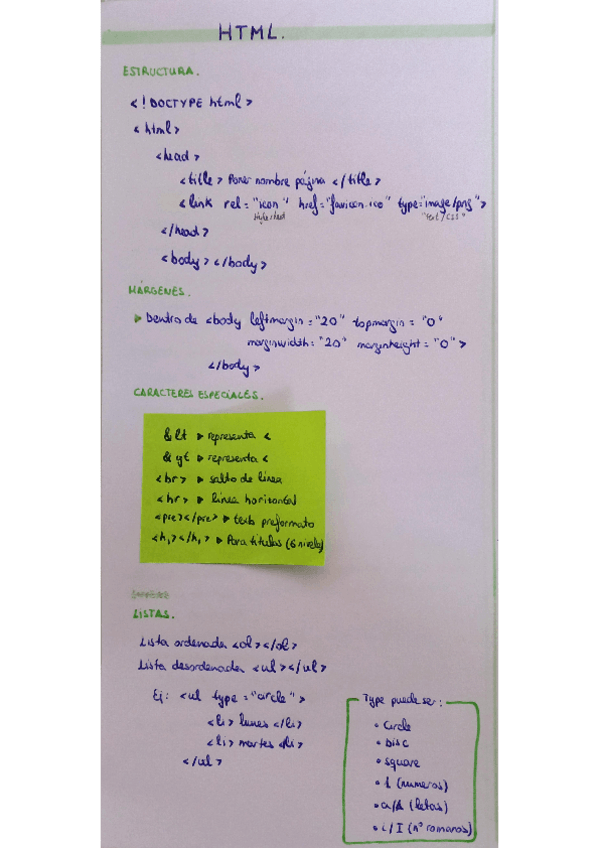 HTML.
ESTRUCTURA.
<!DOCTYPE html>
<html>
<head>
<title> Poner nombre página </title>
<link rel="icon" href="favicon.ico" type="image/png">
stylesheet "text/css"
</head>
<body></body>
MÁRGENES.
Dentro de <body leftmargin="20" topmargin="0"
marginwidth="20" marginheight="0">
</body>
CARACTERES ESPECIALES.
&lt ▶ representa <
&gt ▶ representa <
<br> ▶ salto de línea
<hr> ▶ línea horizontal
<pre></pre> ▶ texto preformato
<h1></h1> ▶ Para títulos (6 niveles)
LISTAS.
Lista ordenada <ol></ol>
Lista desordenada <ul></ul>
Ej: <ul type="circle">
<li> lunes </li>
<li> martes </li>
</ul>
Type puede ser:
• Circle
• Disc
• square
• 1 (numeros)
• a/A (letras)
• i/I (nº romanos)